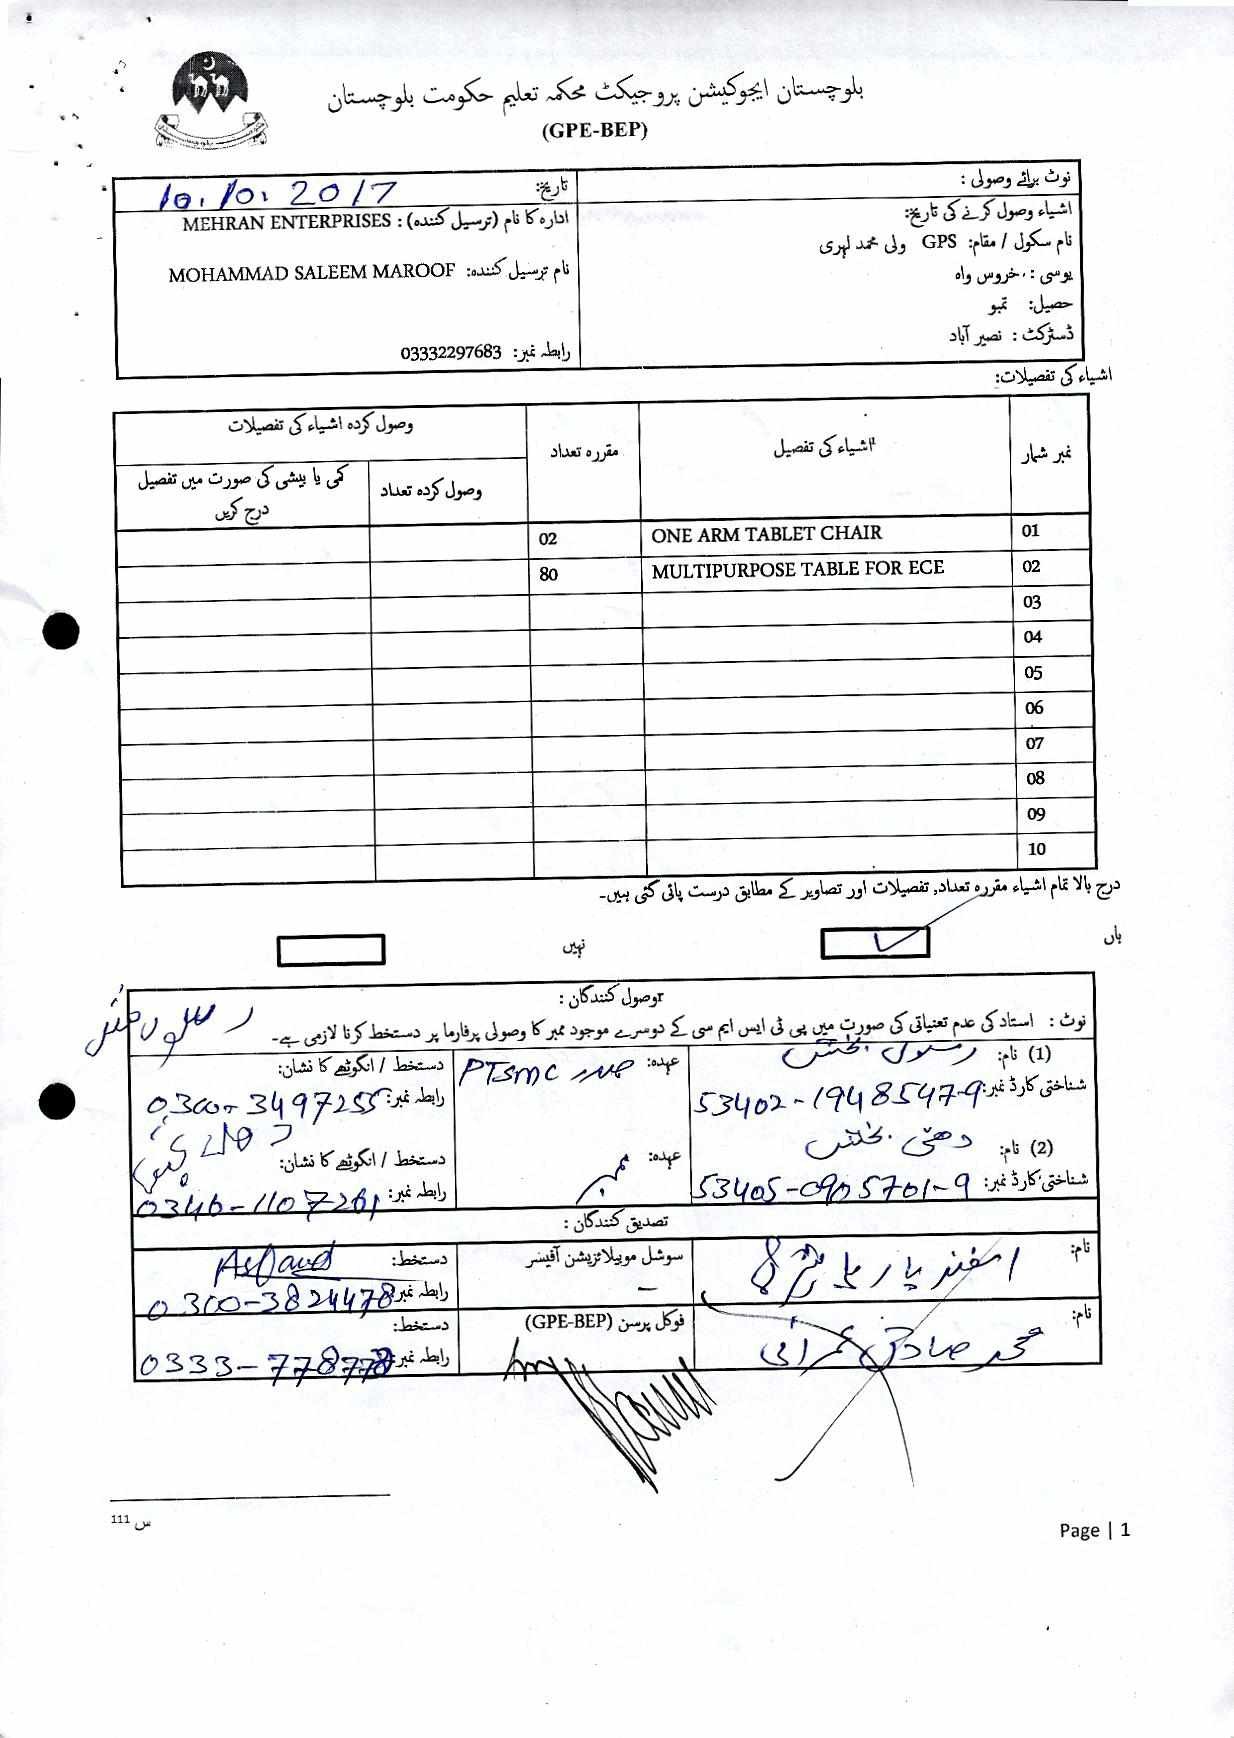 بلوچستان ایجوکیشن پروجیکٹ محکمہ تعلیم حکومت بلوچستان
(GPE-BEP)
نوٹ برائے وصولی :
اشیاء وصول کرنے کی تاریخ:
نام سکول / مقام: GPS ولی محمد لہری
یوسی : خروس واہ
حصیل: تمبو
ڈسٹرکٹ : نصیر آباد
تاریخ: 10.10.2017
ادارہ کا نام (ترسیل کنندہ) : MEHRAN ENTERPRISES
نام ترسیل کنندہ: MOHAMMAD SALEEM MAROOF
رابطہ نمبر: 03332297683
اشیاء کی تفصیلات:
نمبر شمار اشیاء کی تفصیل مقررہ تعداد وصول کردہ اشیاء کی تفصیلات
وصول کردہ تعداد کمی یا بیشی کی صورت میں تفصیل درج کریں
01 ONE ARM TABLET CHAIR 02
02 MULTIPURPOSE TABLE FOR ECE 80
03
04
05
06
07
08
09
10
درج بالا تمام اشیاء مقررہ تعداد, تفصیلات اور تصاویر کے مطابق درست پائی گئی ہیں۔
ہاں نہیں
وصول کنندگان :
نوٹ : استاد کی عدم تعنیاتی کی صورت میں پی ٹی ایس ایم سی کے دوسرے موجود ممبر کا وصولی پرفارما پر دستخط کرنا لازمی ہے۔
(1) نام: رسول بخش عہدہ: صدر PTSMC دستخط / انگوٹھے کا نشان: رسول بخش
شناختی کارڈ نمبر: 53402-1948547-9 رابطہ نمبر: 0300-3497255
(2) نام: دھنی بخش عہدہ: ممبر دستخط / انگوٹھے کا نشان:
شناختی کارڈ نمبر: 53405-0905701-9 رابطہ نمبر: 0346-1107261
تصدیق کنندگان :
نام: اسفند یار سوشل موبیلائزیشن آفیسر دستخط:
رابطہ نمبر: 0300-3824478
نام: محمد صادق عمرانی فوکل پرسن (GPE-BEP) دستخط:
رابطہ نمبر: 0333-778778
س 111
Page | 1